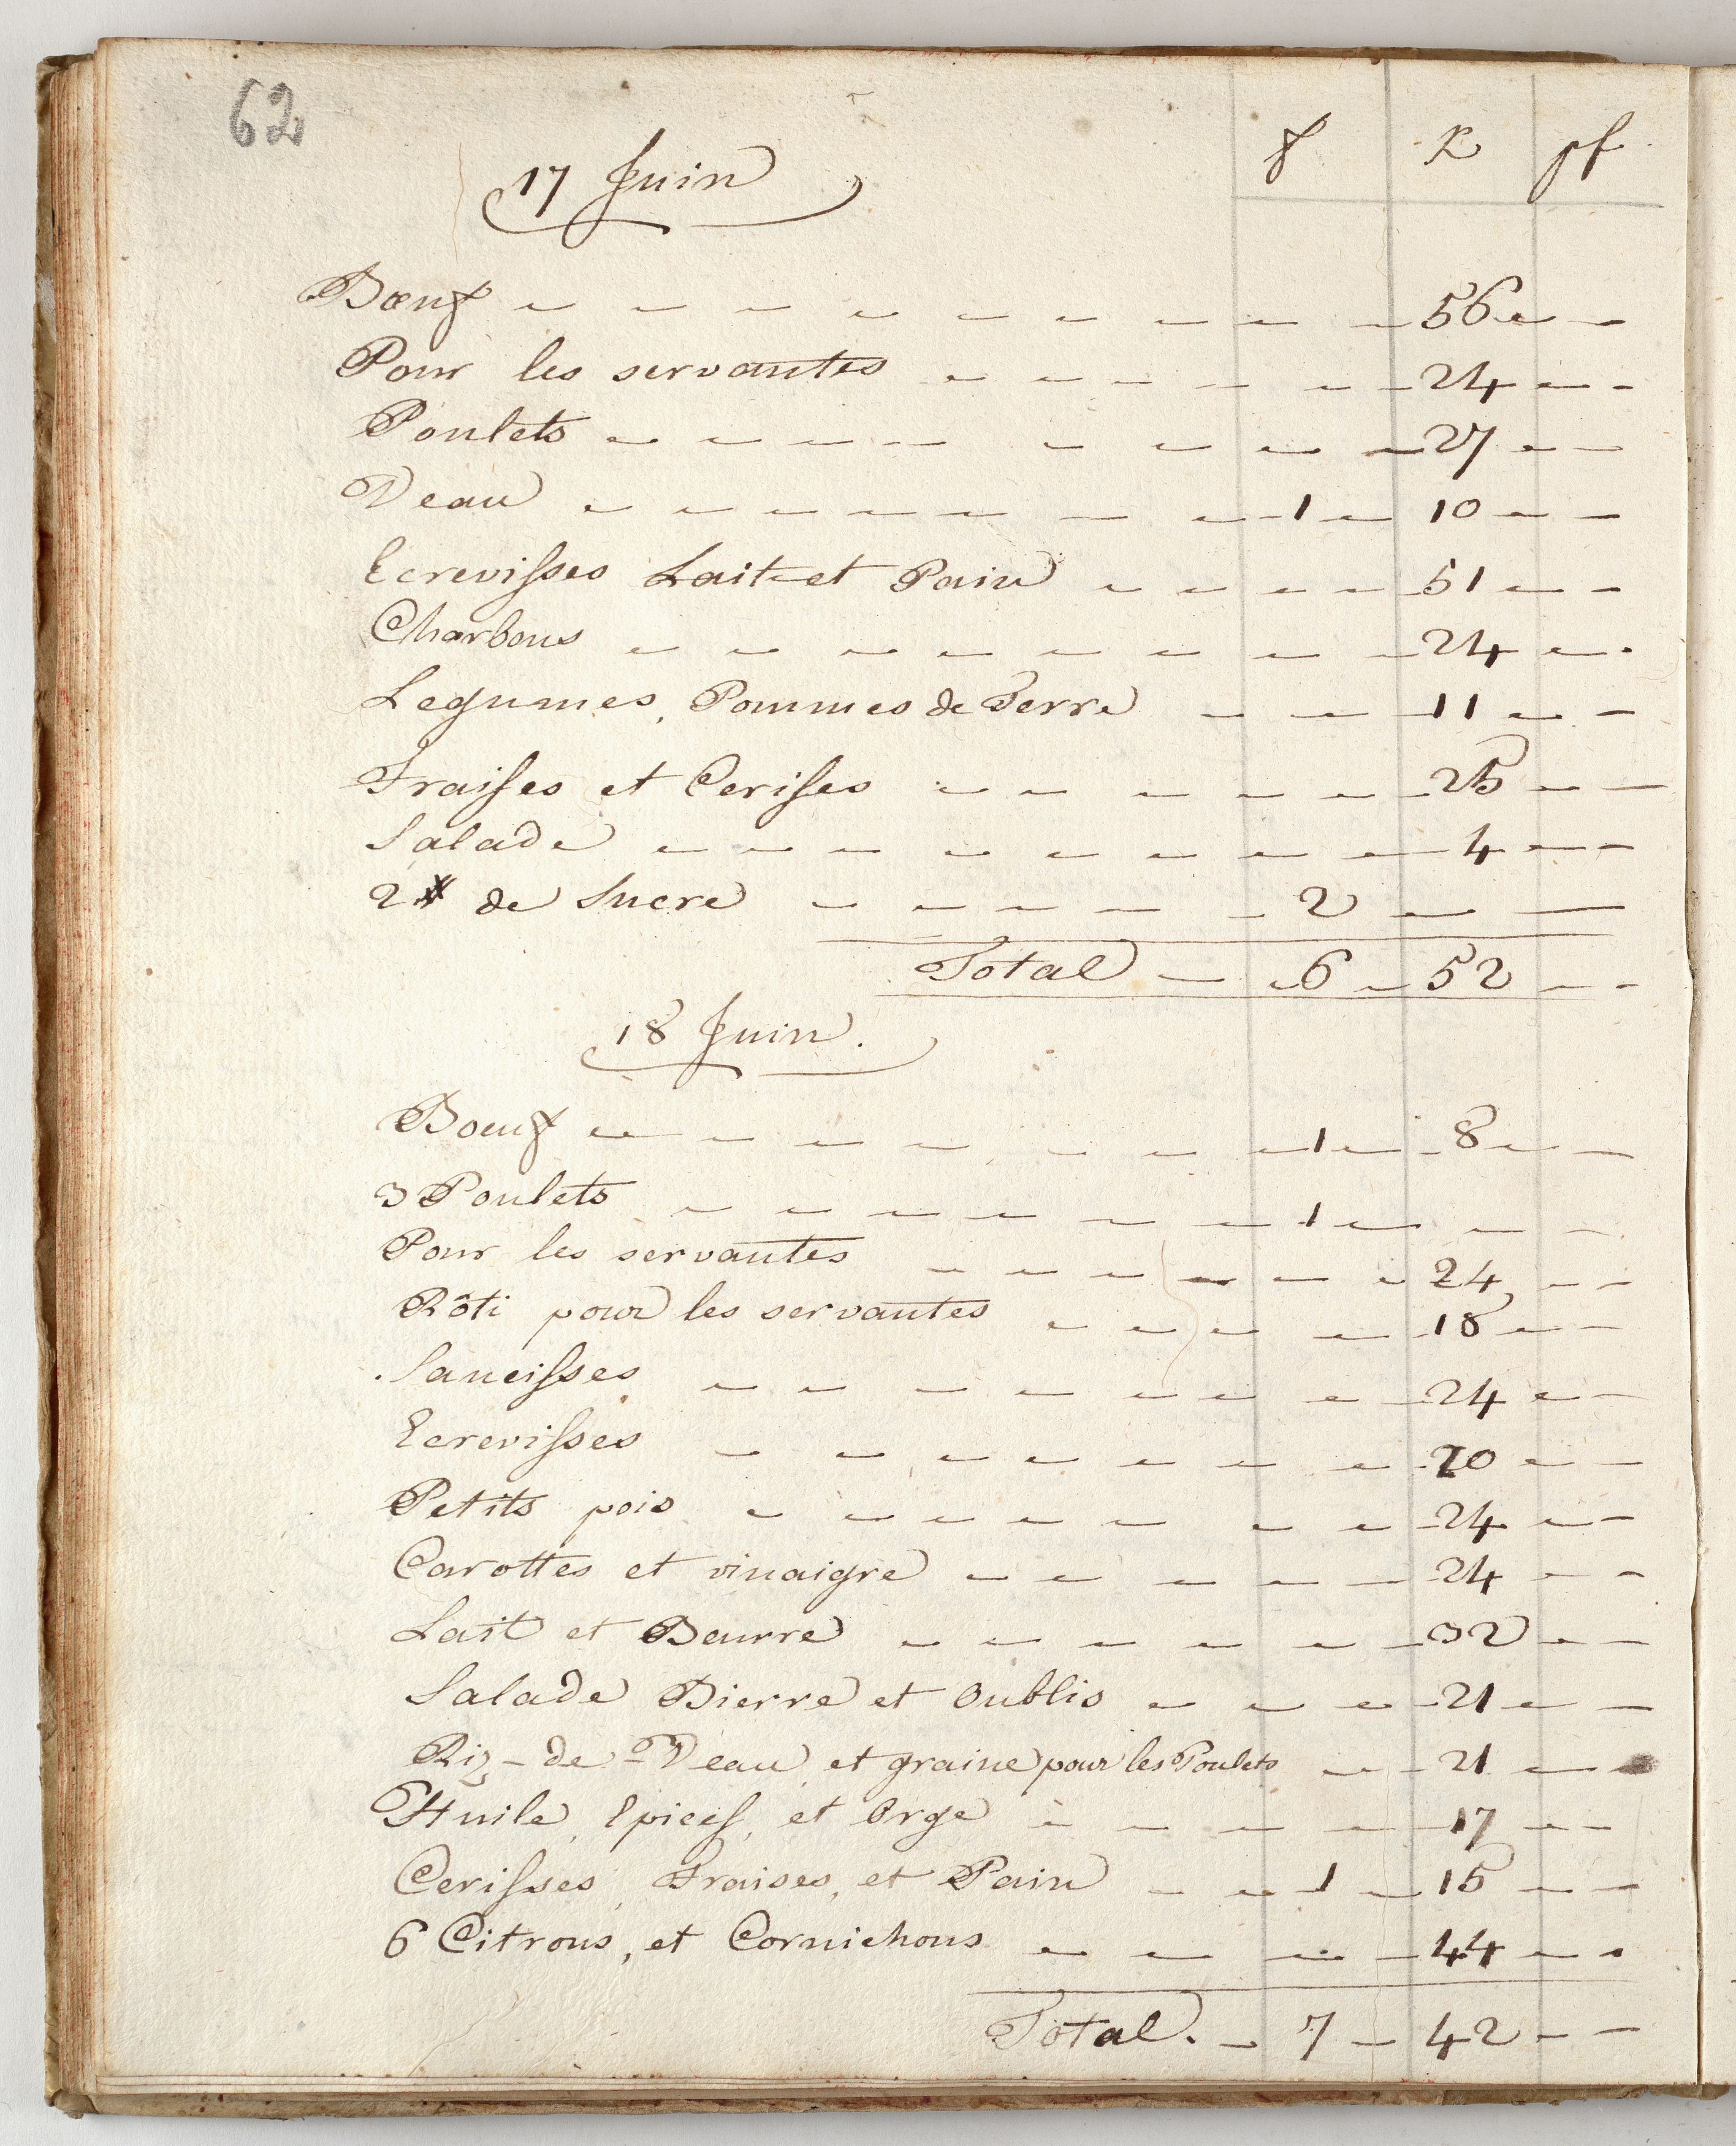 62
f k pf
17 Juin
Bœuf 56
Pour les servantes 24
Poulets 27
Veau 1 10
Ecrevisses Lait et Pain 51
Charbons 24
Legumes, Pommes de Terre 11
Fraises et Cerises 25
Salade 4
2 de Sucre 2
Total 6 52
18 Juin.
Boeuf 1 8
3 Poulets 1
Pour les servantes 24
Rôti pour les servantes 18
Saucisses 24
Ecrevisses 70
Petits pois 24
Carottes et vinaigre 24
Lait et Beurre 32
Salade Bierre et Oublis 21
Riz-de-Veau et graine pour les Poulets 21
Huile, Epices, et Orge 17
Cerisses, Fraises, et Pain 1 15
6 Citrons, et Cornichons 44
Total. 7 42